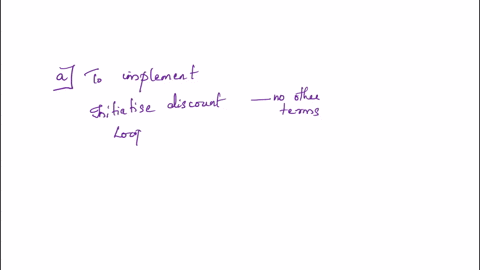 a] To implement
Initiatise discount — no other terms
Loop